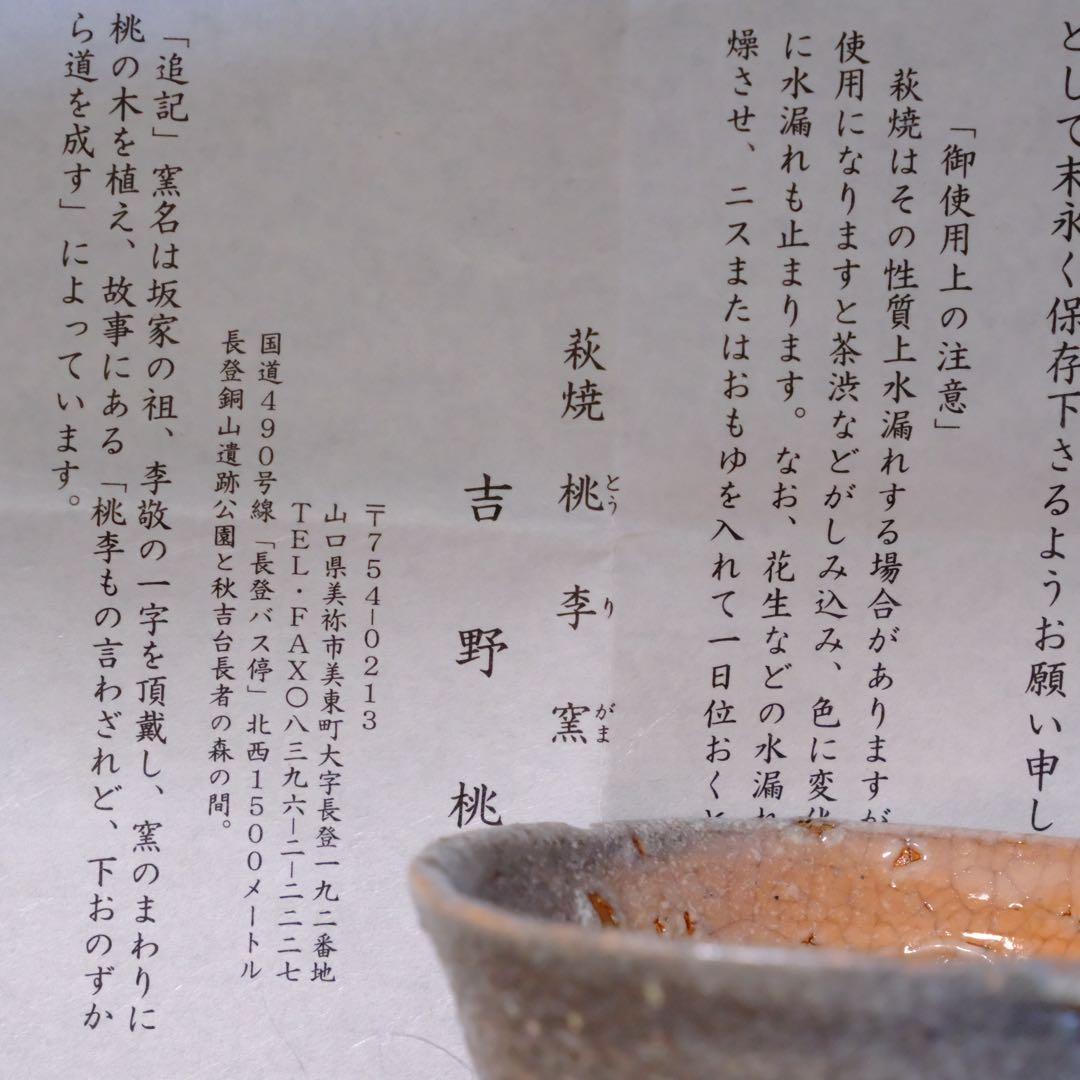 として末永く保存下さるようお願い申し
「御使用上の注意」
萩焼はその性質上水漏れする場合がありますが
使用になりますと茶渋などがしみ込み、色に変化
に水漏れも止まります。なお、花生などの水漏れ
燥させ、ニスまたはおもゆを入れて一日位おくと
萩焼 桃李窯
とう り がま
吉野桃
〒754-0213
山口県美祢市美東町大字長登一九二番地
TEL・FAX〇八三九六-二-二二二七
国道490号線「長登バス停」北西1500メートル
長登銅山遺跡公園と秋吉台長者の森の間。
「追記」窯名は坂家の祖、李敬の一字を頂戴し、窯のまわりに
桃の木を植え、故事にある「桃李もの言わざれど、下おのずか
ら道を成す」によっています。